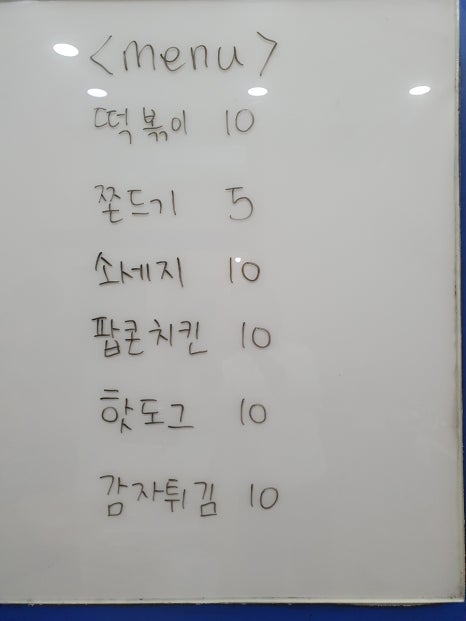 <menu>
떡볶이 10
쫀드기 5
소세지 10
팝콘치킨 10
핫도그 10
감자튀김 10